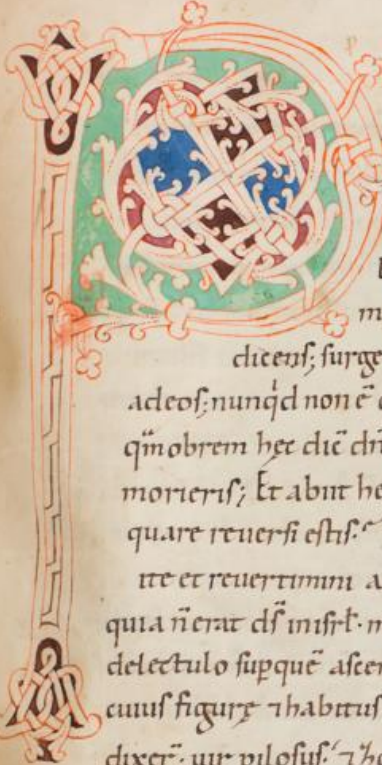 P
m
dicens; surge
adeos; nunqd non ē
qm̄obrem hęc dic̄ dn̄
morieris; Et abiit he
quare reuersi estis.
ite et reuertimini a
quia n̄ erat ds̄ inisrl̄. m
delectulo sup quē ascen
cuius figurę ⁊ habitus
dixer̄. uir pilosus. ⁊ he